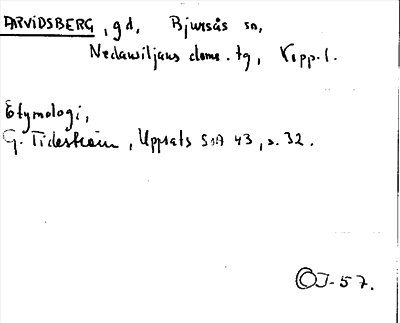 ARVIDSBERG, gd, Bjursås sn,
Nedansiljans doms. tg, Kopp. l.
Etymologi,
G. Tideström, Uppsats SNA 43, s. 32.
OJ-57.